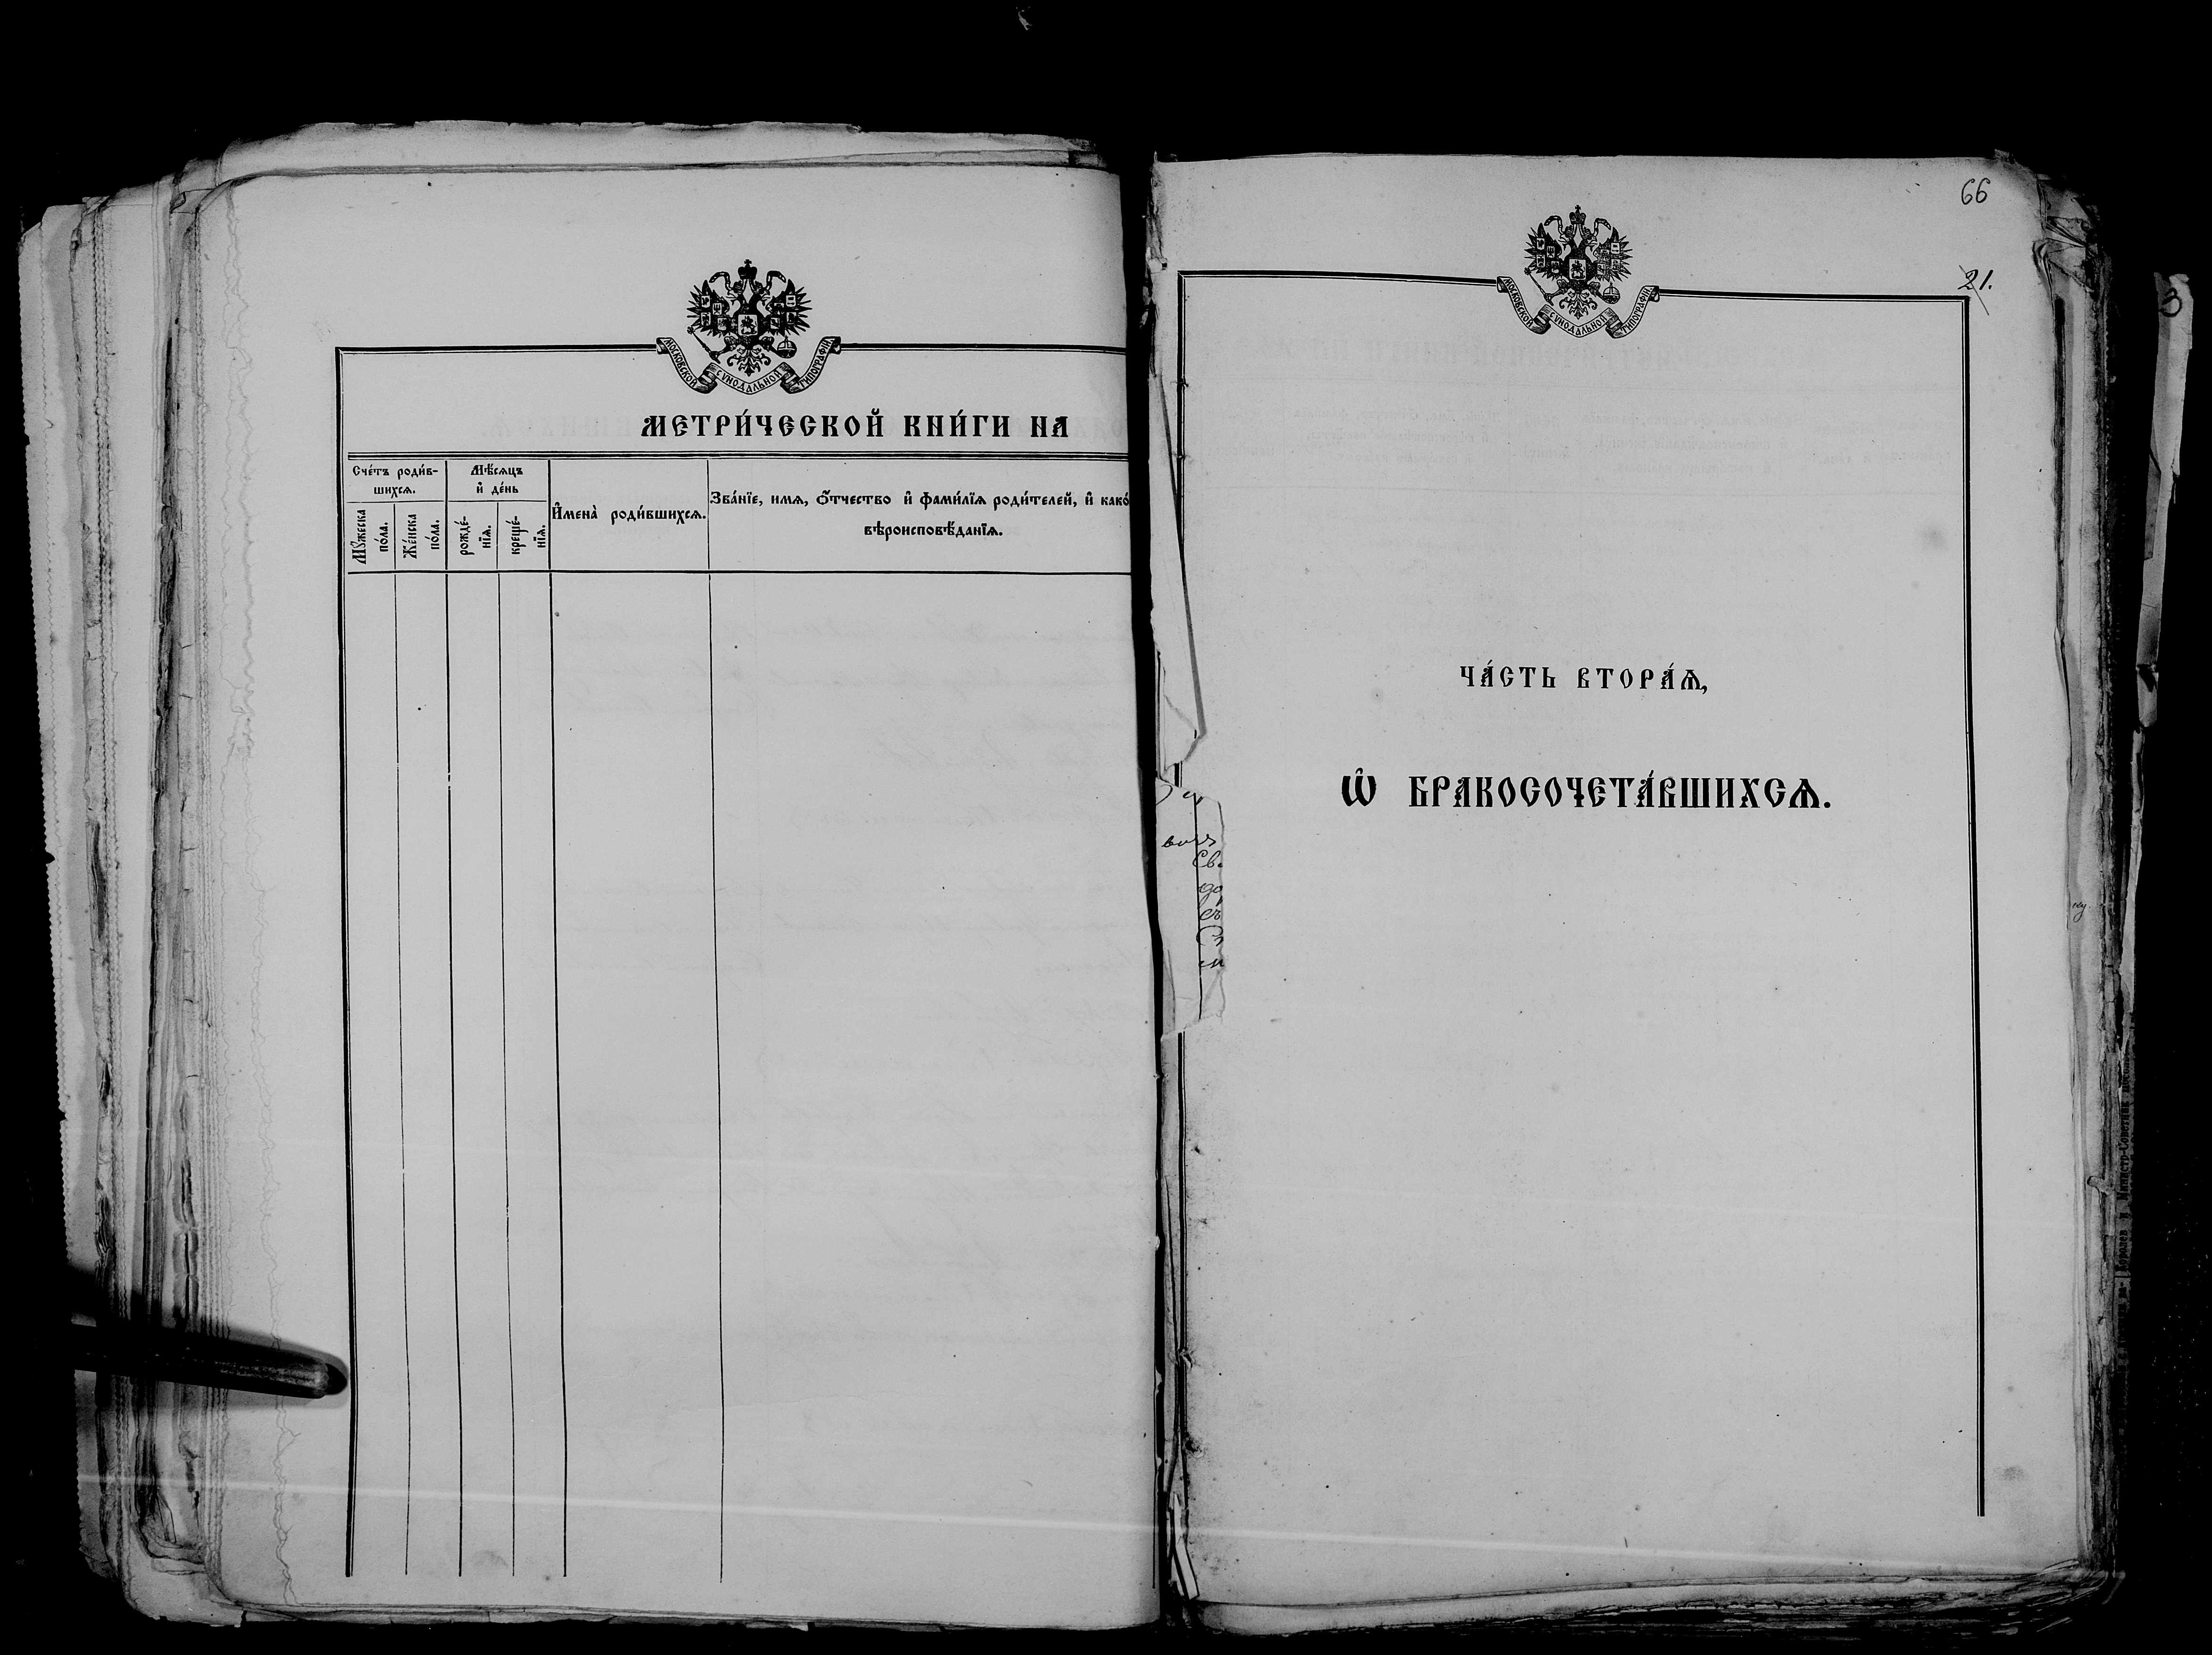 МОСКОВСКОЙ СѴНОДАЛЬНОЙ ТИПОГРАФІИ
МЕТРИ́ЧЕСКОЙ КНИ́ГИ НА
Сче́тъ роди́в-
шихсѧ.
Мѣ́сѧцъ
и҆ де́нь
И҆мена̀ роди́вшихсѧ.
Зва́нїе, имѧ, ѻ҆́тчество и҆ фами́лїѧ роди́телей, и҆ како́
вѣроисповѣ́данїѧ.
Мꙋ́жеска
по́ла.
Же́нска
по́ла.
рожде́-
нїѧ.
креще́-
нїѧ.
66
МОСКОВСКОЙ СѴНОДАЛЬНОЙ ТИПОГРАФІИ
21.
ЧА́СТЬ ВТОРА́Ѧ,
Ѡ҆ БРАКОСОЧЕТА́ВШИХСѦ.
Св.
до
съ
3